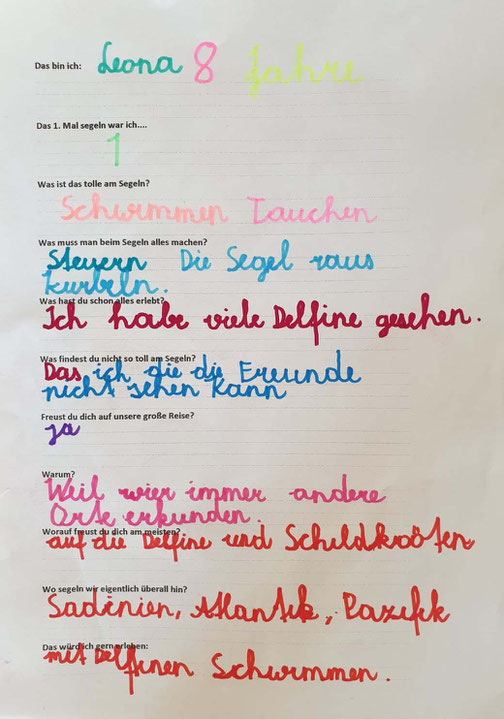 Das bin ich: Leona 8 Jahre
Das 1. Mal segeln war ich....
1
Was ist das tolle am Segeln?
Schwimmen Tauchen
Was muss man beim Segeln alles machen?
Steuern Die Segel raus
kurbeln.
Was hast du schon alles erlebt?
Ich habe viele Delfine gesehen.
Was findest du nicht so toll am Segeln?
Das ich die die Freunde
nicht sehen kann
Freust du dich auf unsere große Reise?
ja
Warum?
Weil wier immer andere
Orte erkunden.
Worauf freust du dich am meisten?
auf die Delfine und Schildkröten
Wo segeln wir eigentlich überall hin?
Sadinien, Atlantik, Pazifik
Das würd ich gern erleben:
mit Delfinen Schwimmen.